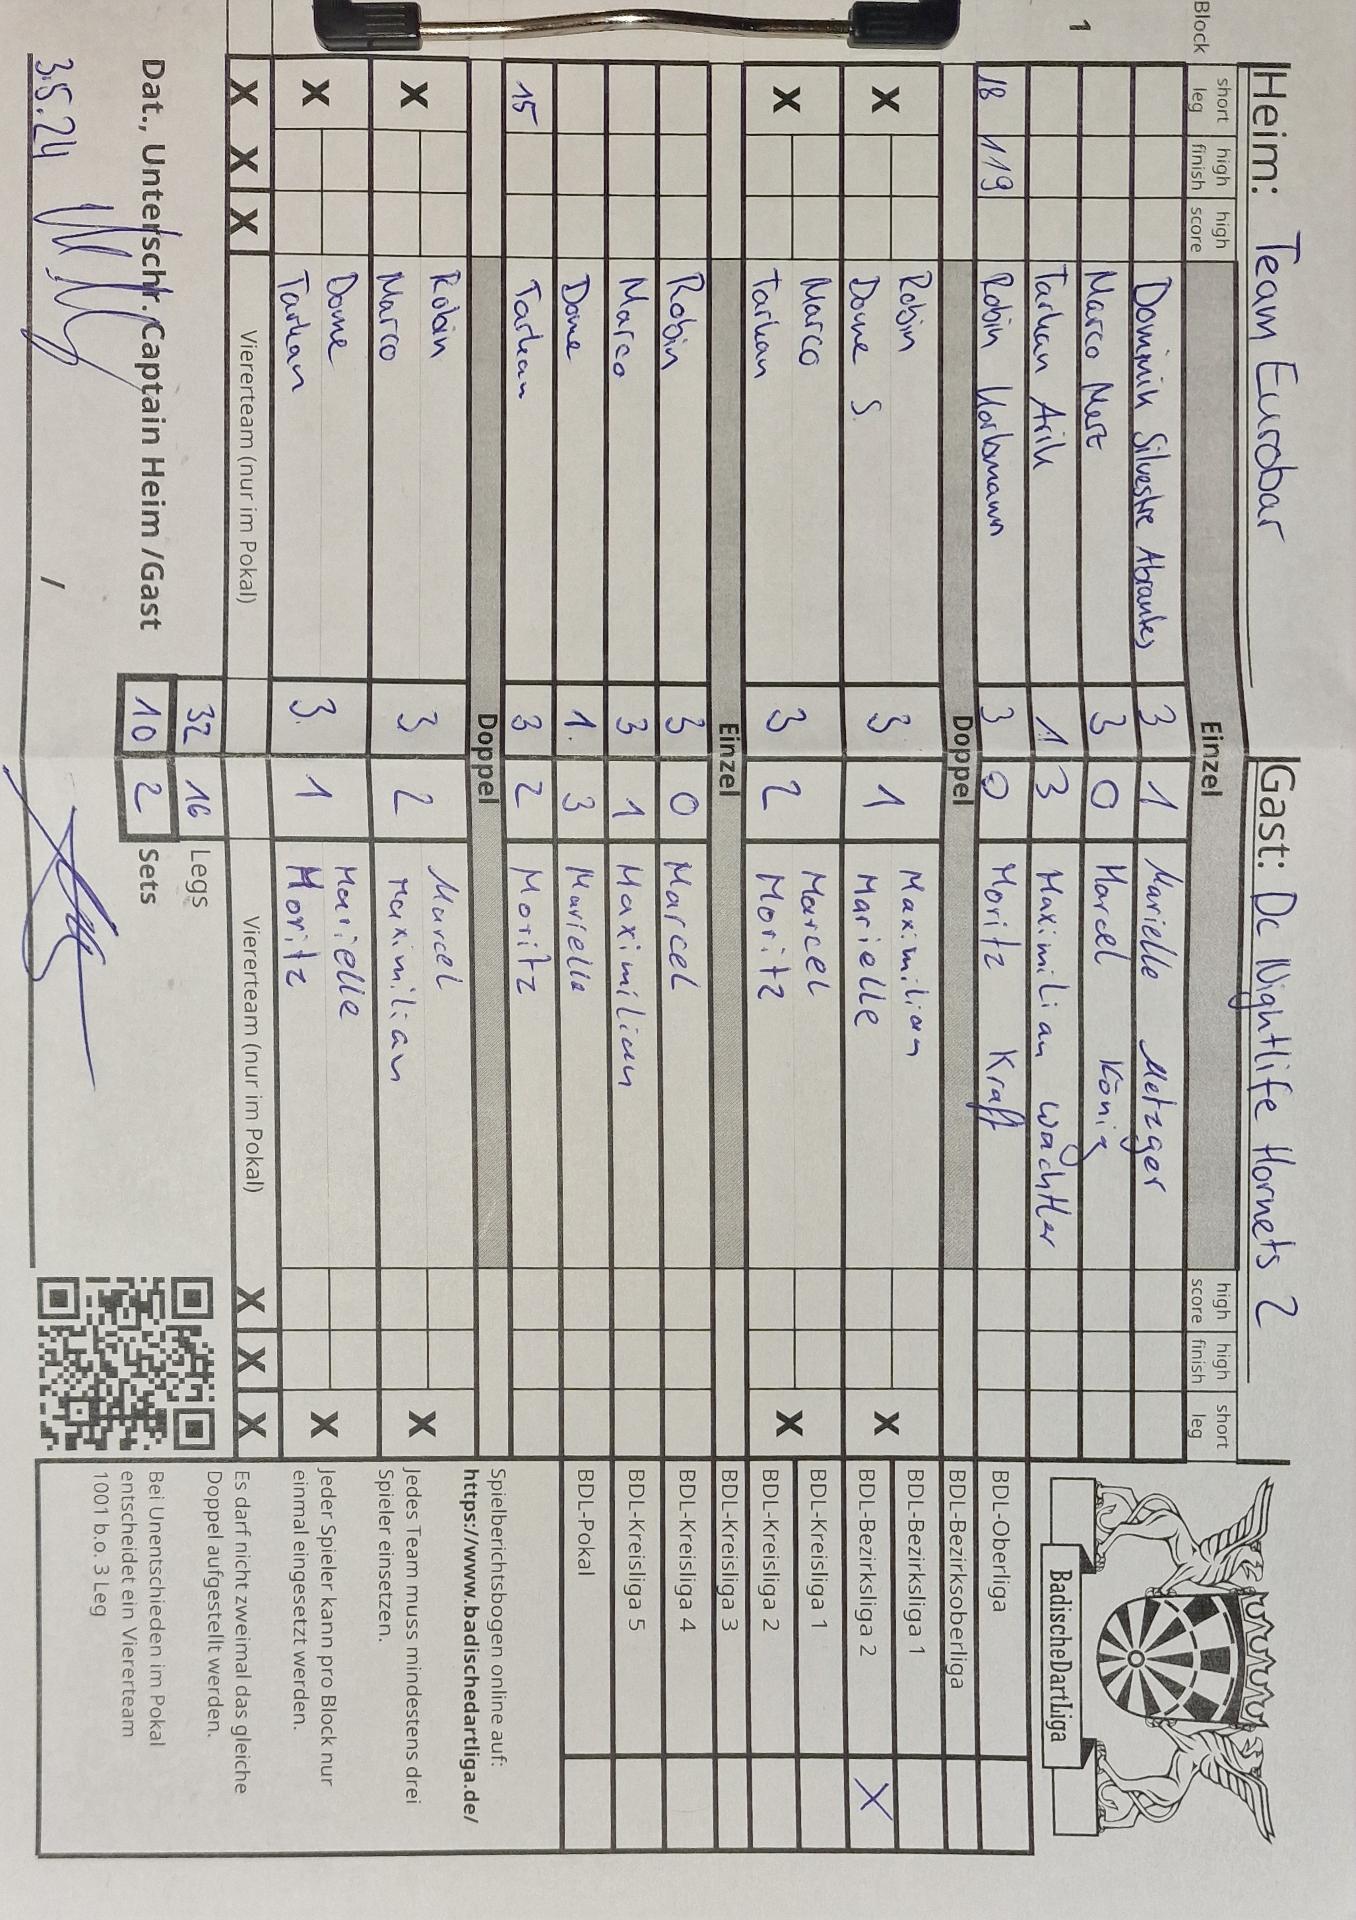 Heim: Team Eurobar Gast: Dc Nightlife Hornets 2
Block short leg high finish high score Einzel high score high finish short leg
1
Dominik Silvestre Abrantes 3 1 Marielle Metzger
Marco Merz 3 0 Marcel König
Tarkan Arik 1 3 Maximilian Wächtler
18 119 Robin 3 0 Moritz Kraft
Doppel
X Robin 3 1 Maximilian X
Dome S. Marielle
X Marco 3 2 Marcel X
Tarkan Moritz
Einzel
Robin 3 0 Marcel
Marco 3 1 Maximilian
Dome 1 3 Marielle
15 Tarkan 3 2 Moritz
Doppel
X Robin 3 2 Marcel X
Marco Maximilian
X Dome 3 1 Marielle X
Tarkan Moritz
X X X Viererteam (nur im Pokal) Viererteam (nur im Pokal) X X X
32 16 Legs
Dat., Unterschr. Captain Heim /Gast 10 2 Sets
3.5.24 /
BadischeDartLiga
BDL-Oberliga
BDL-Bezirksoberliga
BDL-Bezirksliga 1
BDL-Bezirksliga 2 X
BDL-Kreisliga 1
BDL-Kreisliga 2
BDL-Kreisliga 3
BDL-Kreisliga 4
BDL-Kreisliga 5
BDL-Pokal
Spielberichtsbogen online auf:
https://www.badischedartliga.de/
Jedes Team muss mindestens drei
Spieler einsetzen.
Jeder Spieler kann pro Block nur
einmal eingesetzt werden.
Es darf nicht zweimal das gleiche
Doppel aufgestellt werden.
Bei Unentschieden im Pokal
entscheidet ein Viererteam
1001 b.o. 3 Leg